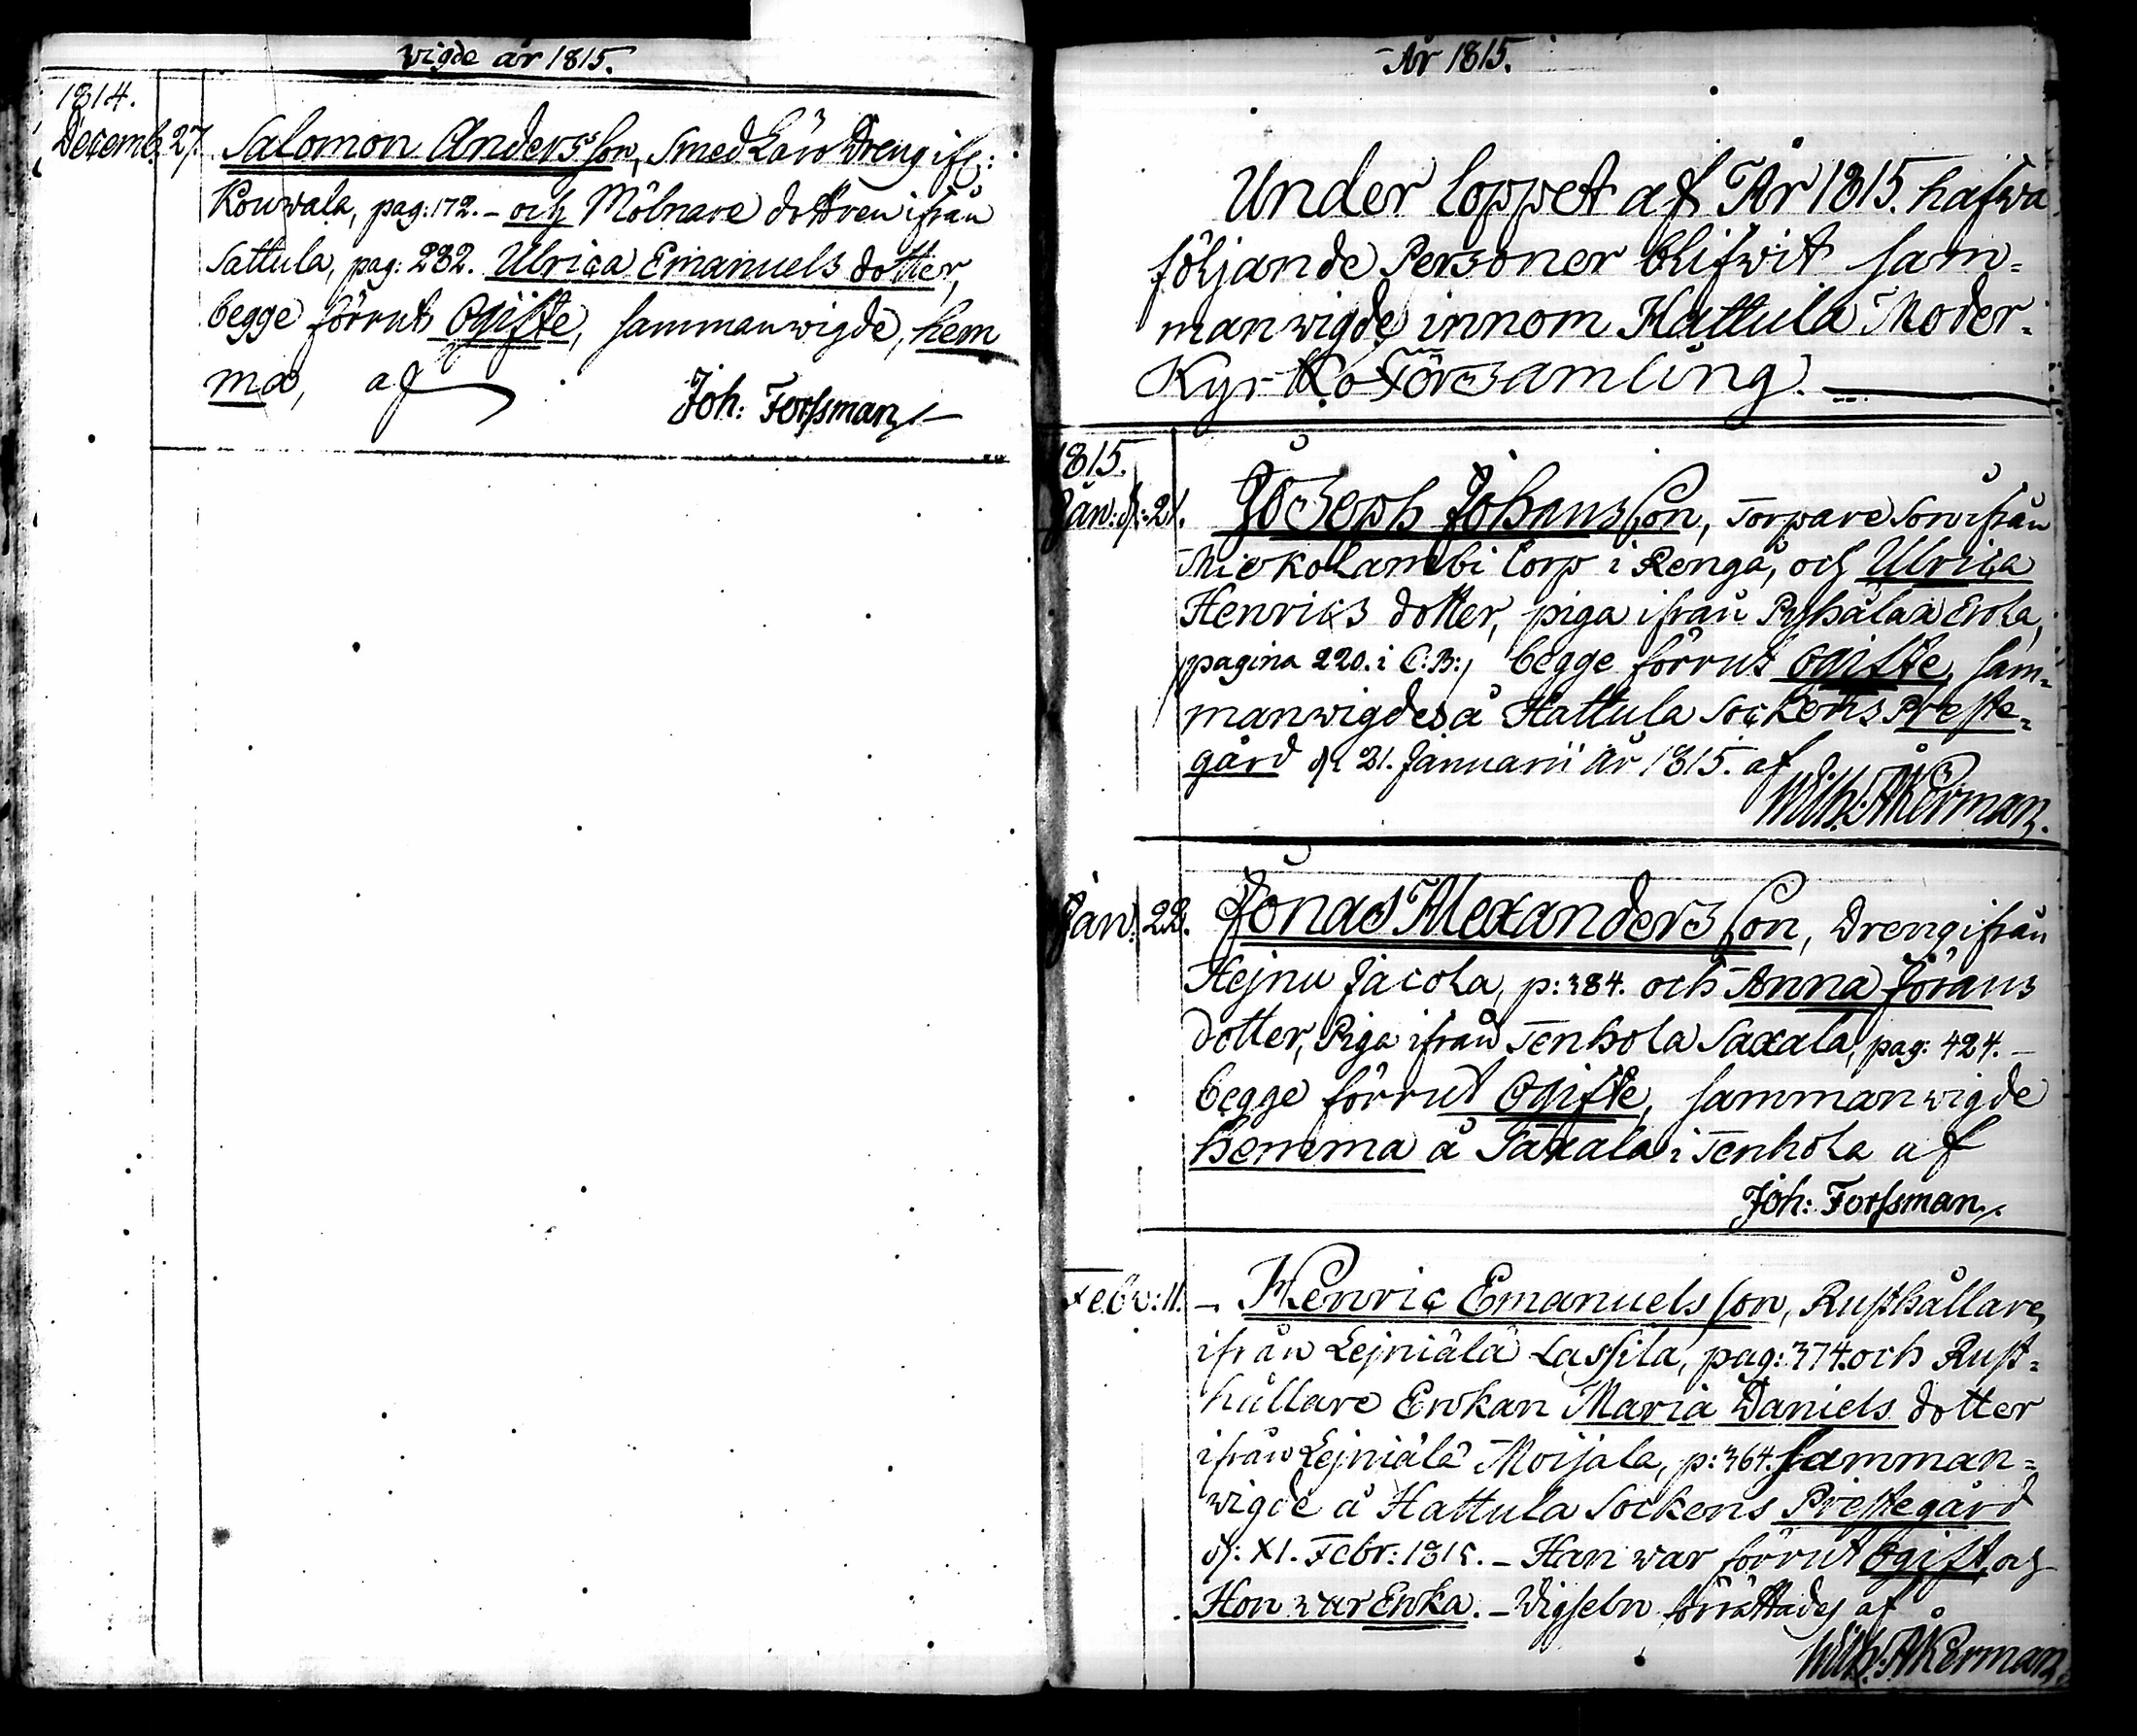 wigde år 1815.
1814.
Decemb. 27. Salomon Andersson, Smed Läro Dreng ifr:
Kouwala, pag: 172. – och Mölnare dottren ifrån
Sattula, pag: 232. Ulrica Emanuels dotter,
begge förrut Ogifte, sammanwigde, hem
ma, af
Joh: Forssman
År 1815.
Under loppet af År 1815. hafwa
följande Personer blifwit sam=
manwigde innom Hattula Moder=
Kyrko Församling.
1815.
Jan: d: 21. Joseph Johansson, Torpare Son ifrån
torp i Renga, och Ulrica
Henrics dotter, piga ifrån Pyhälax Erola,
pagina 220. i C:B:, begge förrut ogifte, sam=
manwigdes å Hattula Sockens Preste=
gård d: 21. Januarii År 1815. af
Wilh: Åkerman.
Jan: 22. Jonas Alexandersson, Dreng ifrån
Hejnu Jacola, p: 384. och Anna Jörans
dotter, Piga ifrån Tenhola Saxala, pag: 424. –
begge förrut Ogifte, sammanwigde
hemma å Saxala i Tenhola af
Joh: Forssman
Febr: 11. – Henric Emanuelsson, Rusthållare
ifrån Lejniälä Lassila, pag: 374. och Rust=
hållare Enkan Maria Daniels dotter
ifrån Lejniälä Moijala, p: 364. samman=
wigde å Hattula Sockens Prestegård
d: XI. Febr: 1815. – Han war förrut Ogift och
Hon war Enka. – Wigseln förrättades af
Wilh: Åkerman.